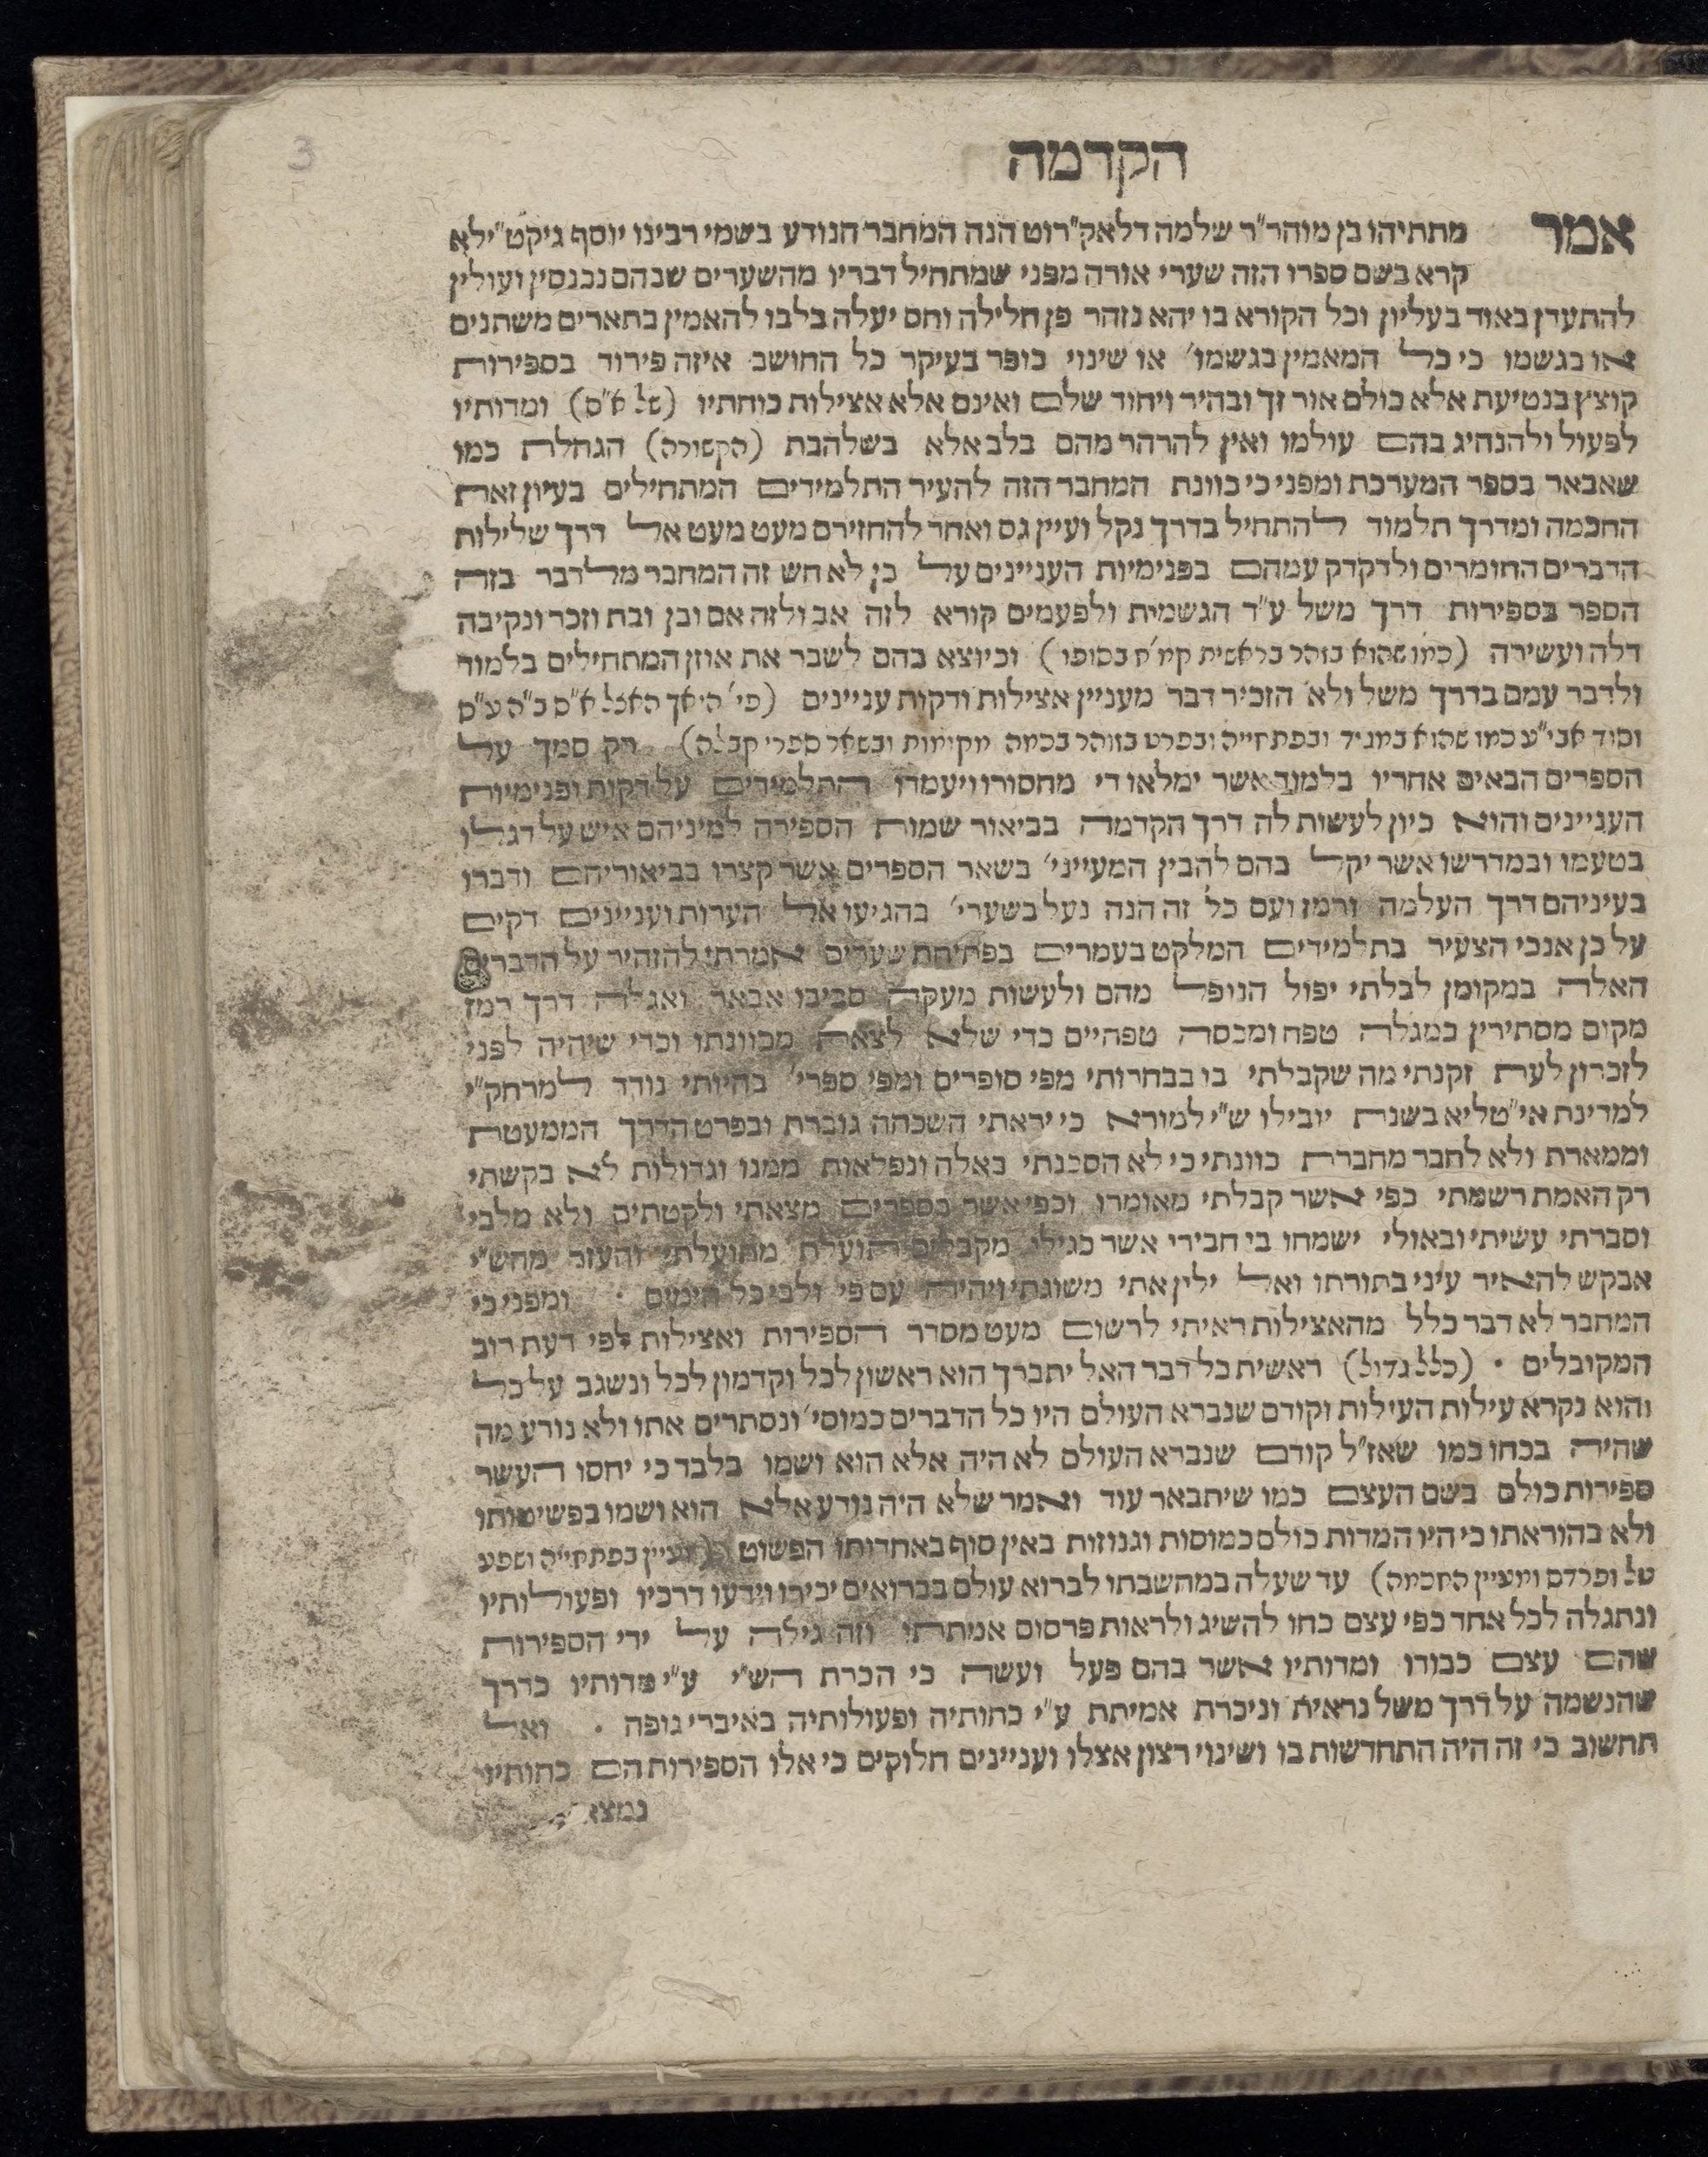 3
הקדמה
אמר מתתיהו בן מוהר"ר שלמה דלאק"רוט הנה המחבר הנודע בשמי רבינו יוסף גיקט"ילא
קרא בשם ספרו הזה שערי אורה מפני שמתחיל דבריו מהשערים שבהם נכנסין ועולין
להתעדן באור בעליון וכל הקורא בו יהא נזהר פן חלילה וחס יעלה בלבו להאמין בתארים משתנים
או בגשמו כי כל המאמין בגשמו' או שינוי כופר בעיקר כל החושב איזה פירוד בספירות
קוצץ בנטיעת אלא כולם אור זך ובהיר ויחוד שלם ואינם אלא אצילות כוחתיו (של א"ס) ומדותיו
לפעול ולהנהיג בהם עולמו ואין להרהר מהם בלב אלא כשלהבת (הקשורה) הגחלת כמו
שאבאר בספר המערכת ומפני כי כוונת המחבר הזה להעיר התלמידים המתחילים בעיון זאת
החכמה ומדרך תלמוד להתחיל בדרך נקל ועיין גס ואחר להחזירם מעט מעט אל דרך שלילות
הדברים החומרים ולדקדק עמהם בפנימיות העניינים על כן לא חש זה המחבר מלדבר בזה
הספר בספירות דרך משל ע"ד הגשמית ולפעמים קורא לזה אב ולזה אם ובן ובת וזכר ונקיבה
דלה ועשירה (כמו שהוא בזהר בראשית קמ"ח בסופו) וכיוצא בהם לשבר את אוזן המתחילים בלמוד
ולדבר עמם בדרך משל ולא הזכיר דבר מעניין אצילות ודקות עניינים (פי' היאך האצל א"ס ב"ה ע"ס
וסוד אבי"ע כמו שהוא במגיד ובפתחייה ובפרט בזוהר בכמה מקומות ובשאר ספרי קבלה) רק סמך על
הספרים הבאים אחריו בלמוד אשר ימלאו די מחסורו ויעמדו התלמידים על דקות ופנימיות
העניינים והוא כיון לעשות לה דרך הקדמה בביאור שמות הספירה למיניהם איש על דגלו
בטעמו ובמדרשו אשר יקל בהם להבין המעייני' בשאר הספרים אשר קצרו בביאוריהם ודברו
בעיניהם דרך העלמה ורמז ועם כל זה הנה נעל בשערי' בהגיעו אל הערות ועניינים דקים
על כן אנכי הצעיר בתלמידים המלקט בעמרים בפתיחת שערים אמרתי להזהיר על הדברים
האלה במקומן לבלתי יפול הנופל מהם ולעשות מעקה סביבו אבאר ואגלה דרך רמז
מקום מסתירין כמגלה טפח ומכסה טפחיים כדי שלא לצאת מכוונתו וכדי שיהיה לפני
לזכרון לעת זקנתי מה שקבלתי בו בבחרותי מפי סופרים ומפי ספרי' בהיותי נודד למרחק"י
למדינת אי"טליא בשנת יובילו ש"י למורא כי יראתי השכחה גוברת ובפרט הדרך הממעטת
וממארת ולא לחבר מחברת כוונתי כי לא הסכנתי באלה ונפלאות ממנו וגדולות לא בקשתי
רק האמת רשמתי כפי אשר קבלתי מאומרו וכפי אשר בספרים מצאתי ולקטתים ולא מלבי
וסברתי עשיתי ובאולי ישמחו בי חבירי אשר כגילי מקבלים תועלת מתועלתי והעזר מהש"י
אבקש להאיר עיני בתורתו ואל ילין אתי משוגתי ויהיה עם פי ולבי כל הימים · ומפני כי
המחבר לא דבר כלל מהאצילות ראיתי לרשום מעט מסדר הספירות ואצילות לפי דעת רוב
המקובלים · (כלל גדול) ראשית כל דבר האל יתברך הוא ראשון לכל וקדמון לכל ונשגב על כל
והוא נקרא עילות העילות וקודם שנברא העולם היו כל הדברים כמוסי' ונסתרים אתו ולא נודע מה
שהיה בכחו כמו שאז"ל קודם שנברא העולם לא היה אלא הוא ושמו בלבד כי יחסו העשר
ספירות כולם בשם העצם כמו שיתבאר עוד ואמר שלא היה נודע אלא הוא ושמו בפשיטותו
ולא בהוראתו כי היו המדות כולם כמוסות וגנוזות באין סוף באחדותו הפשוט (ועיין בפתחייה ושפע
טל ופרדס ומציין החכמה) עד שעלה במחשבתו לברוא עולם בברואים יכירו וידעו דרכיו ופעולותיו
ונתגלה לכל אחד כפי עצם כחו להשיג ולראות פרסום אמתתו וזה גילה על ידי הספירות
שהם עצם כבודו ומדותיו אשר בהם פעל ועשה כי הכרת הש"י ע"י מדותיו כדרך
שהנשמה על דרך משל נראית וניכרת אמיתת ע"י כחותיה ופעולותיה באיברי גופה · ואל
תחשוב כי זה היה התחדשות בו ושינוי רצון אצלו ועניינים חלוקים כי אלו הספירות הם כחותיו
נמצא